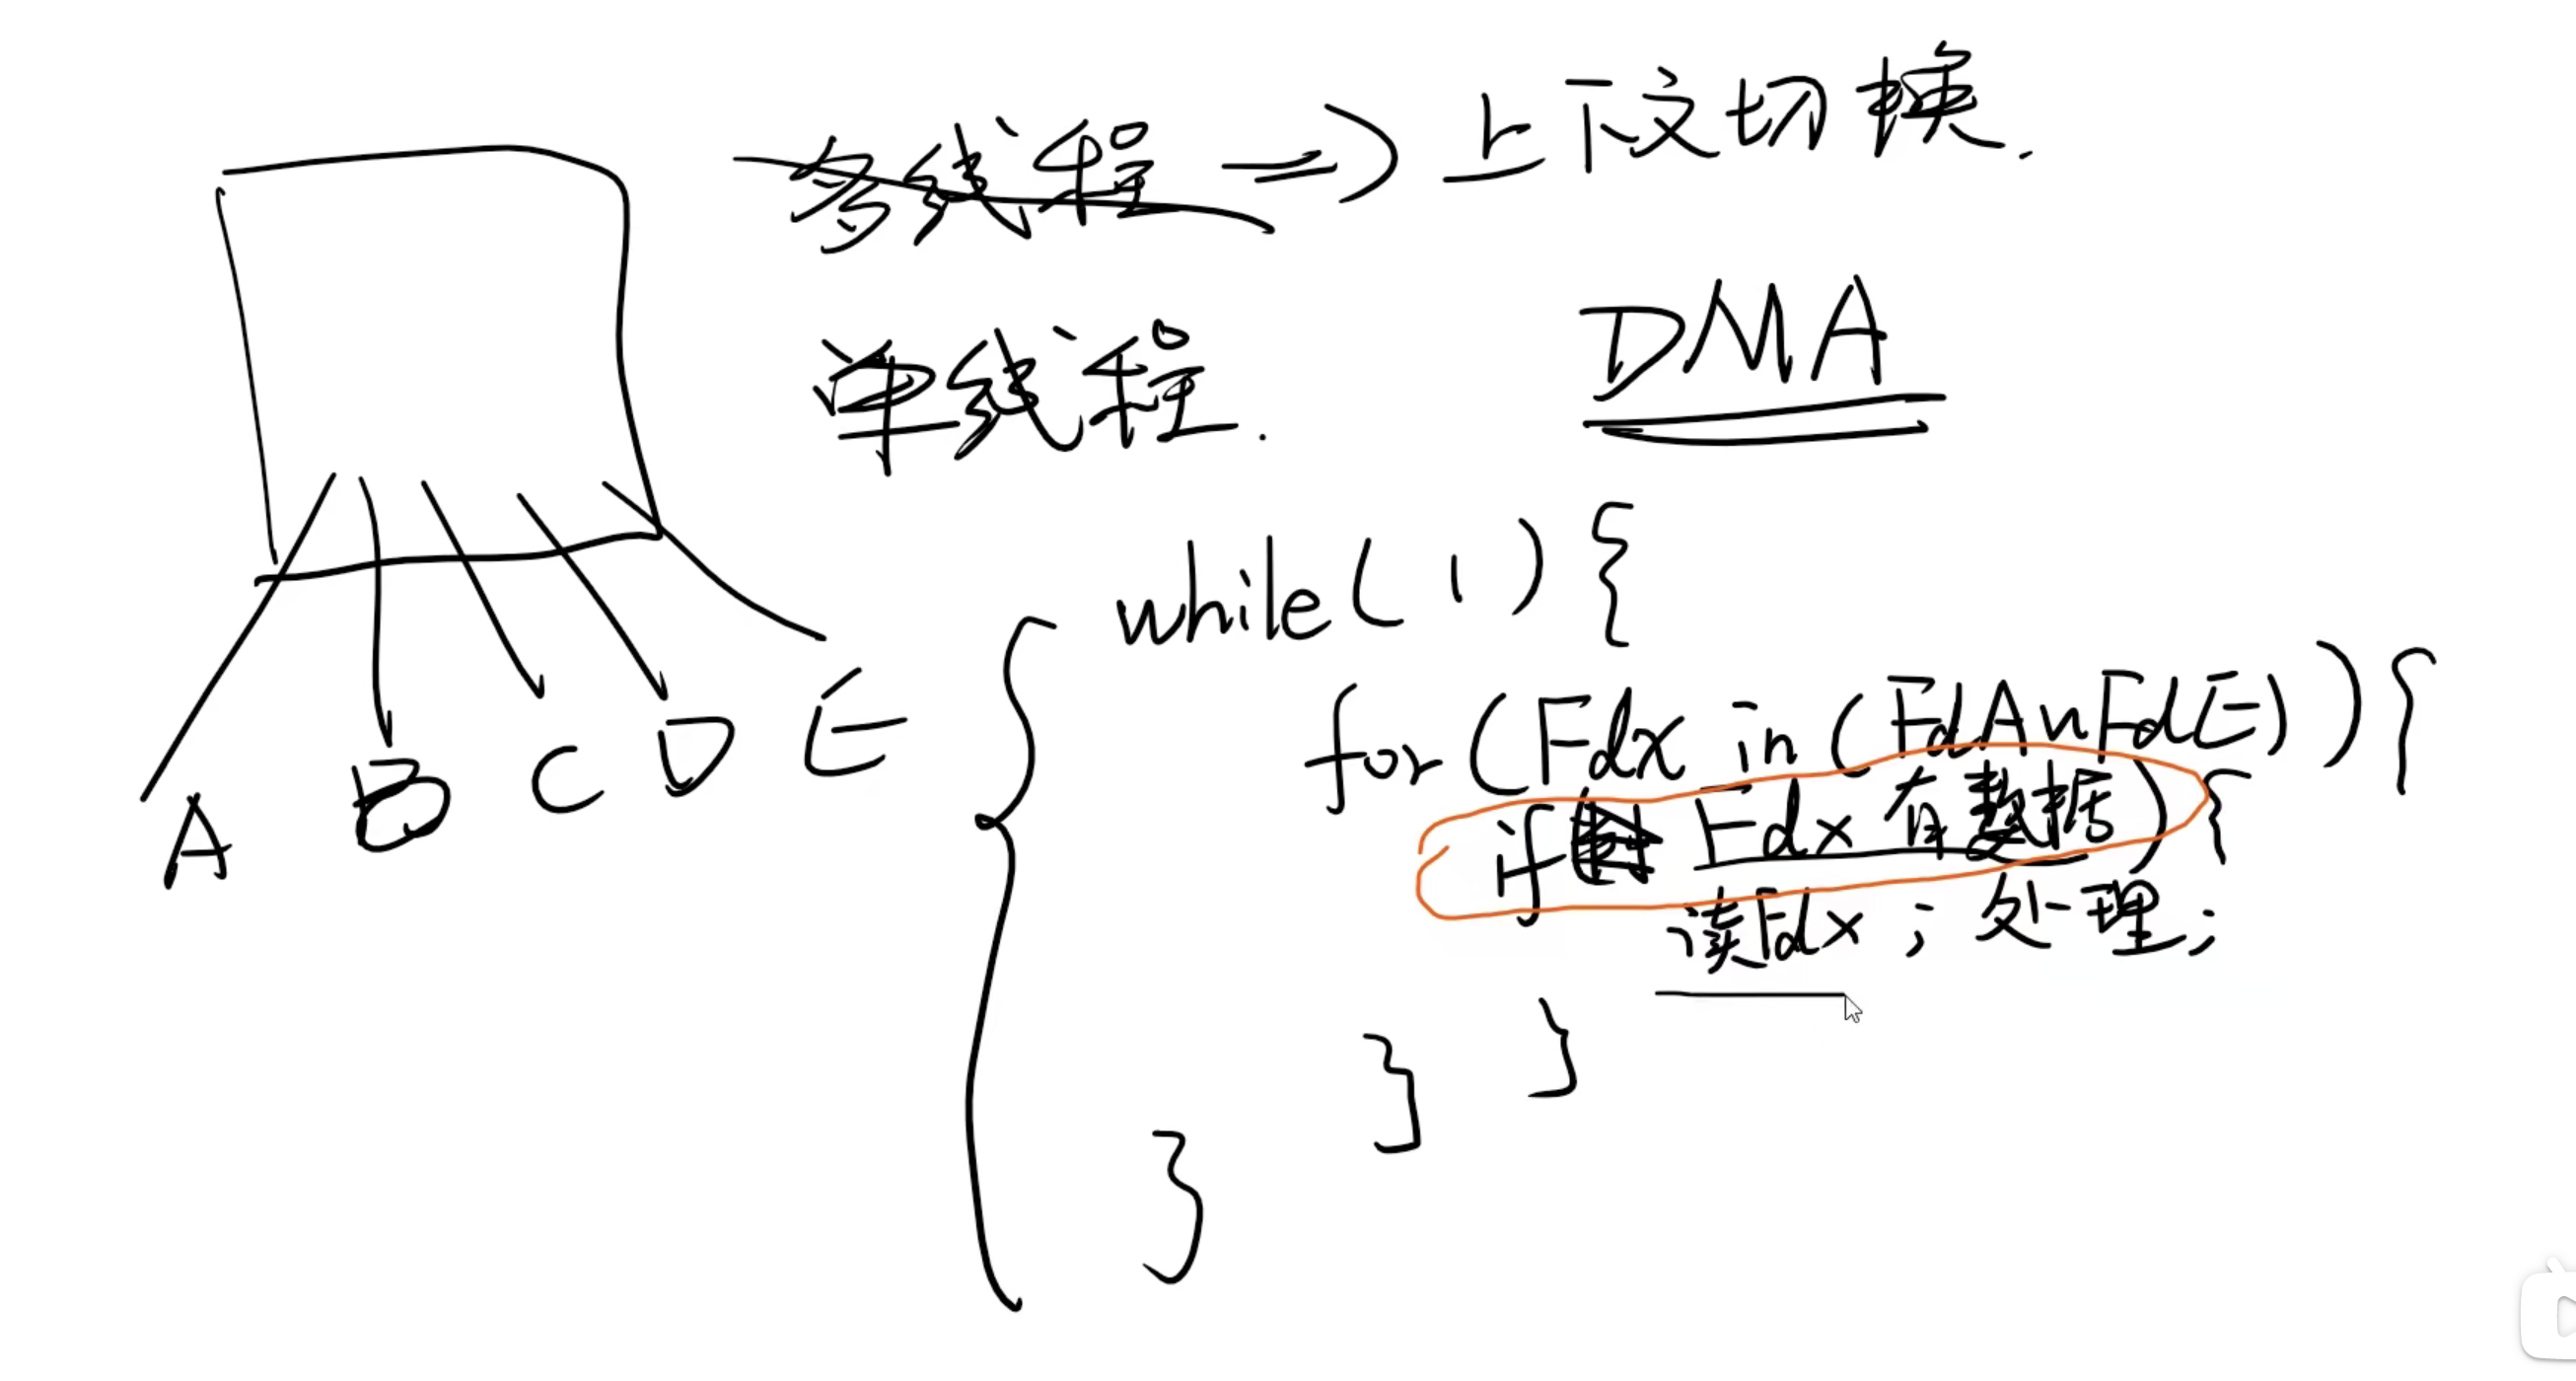 多线程 => 上下文切换.
单线程.
DMA
A B C D E
while(1){
for(Fdx in (FdA~FdE)){
if( Fdx 有数据){
读Fdx; 处理;
}
}
}